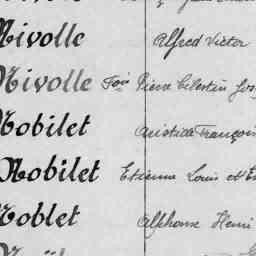 Nivolle Alfred Victor
Nivolle Fois Pierre Célestin
Nobilet Aristide François
Nobilet Etienne Louis
Noblet Alphonse Henri